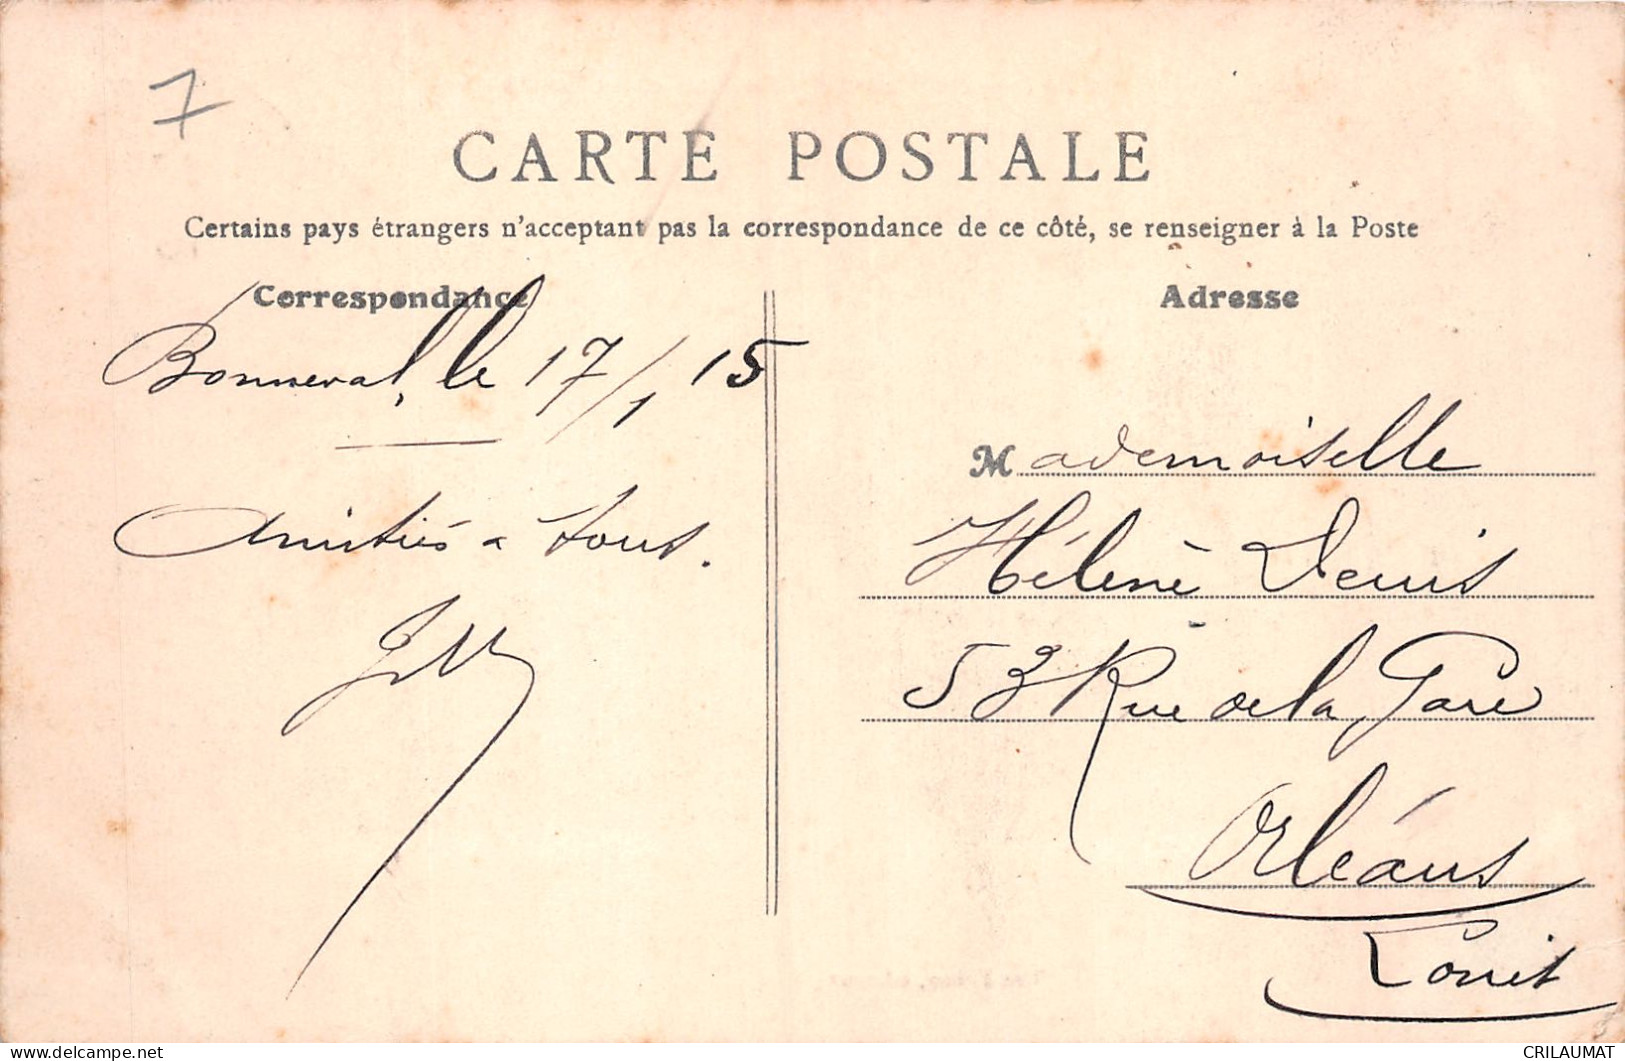 7
CARTE POSTALE
Certains pays étrangers n'acceptant pas la correspondance de ce côté, se renseigner à la Poste
Correspondance
Bonneval, le 17/1 15
Amitiés a tous.
Adresse
Mademoiselle
Hélène Denis
53 Rue de la Gare
Orléans
Loiret
CRILAUMAT